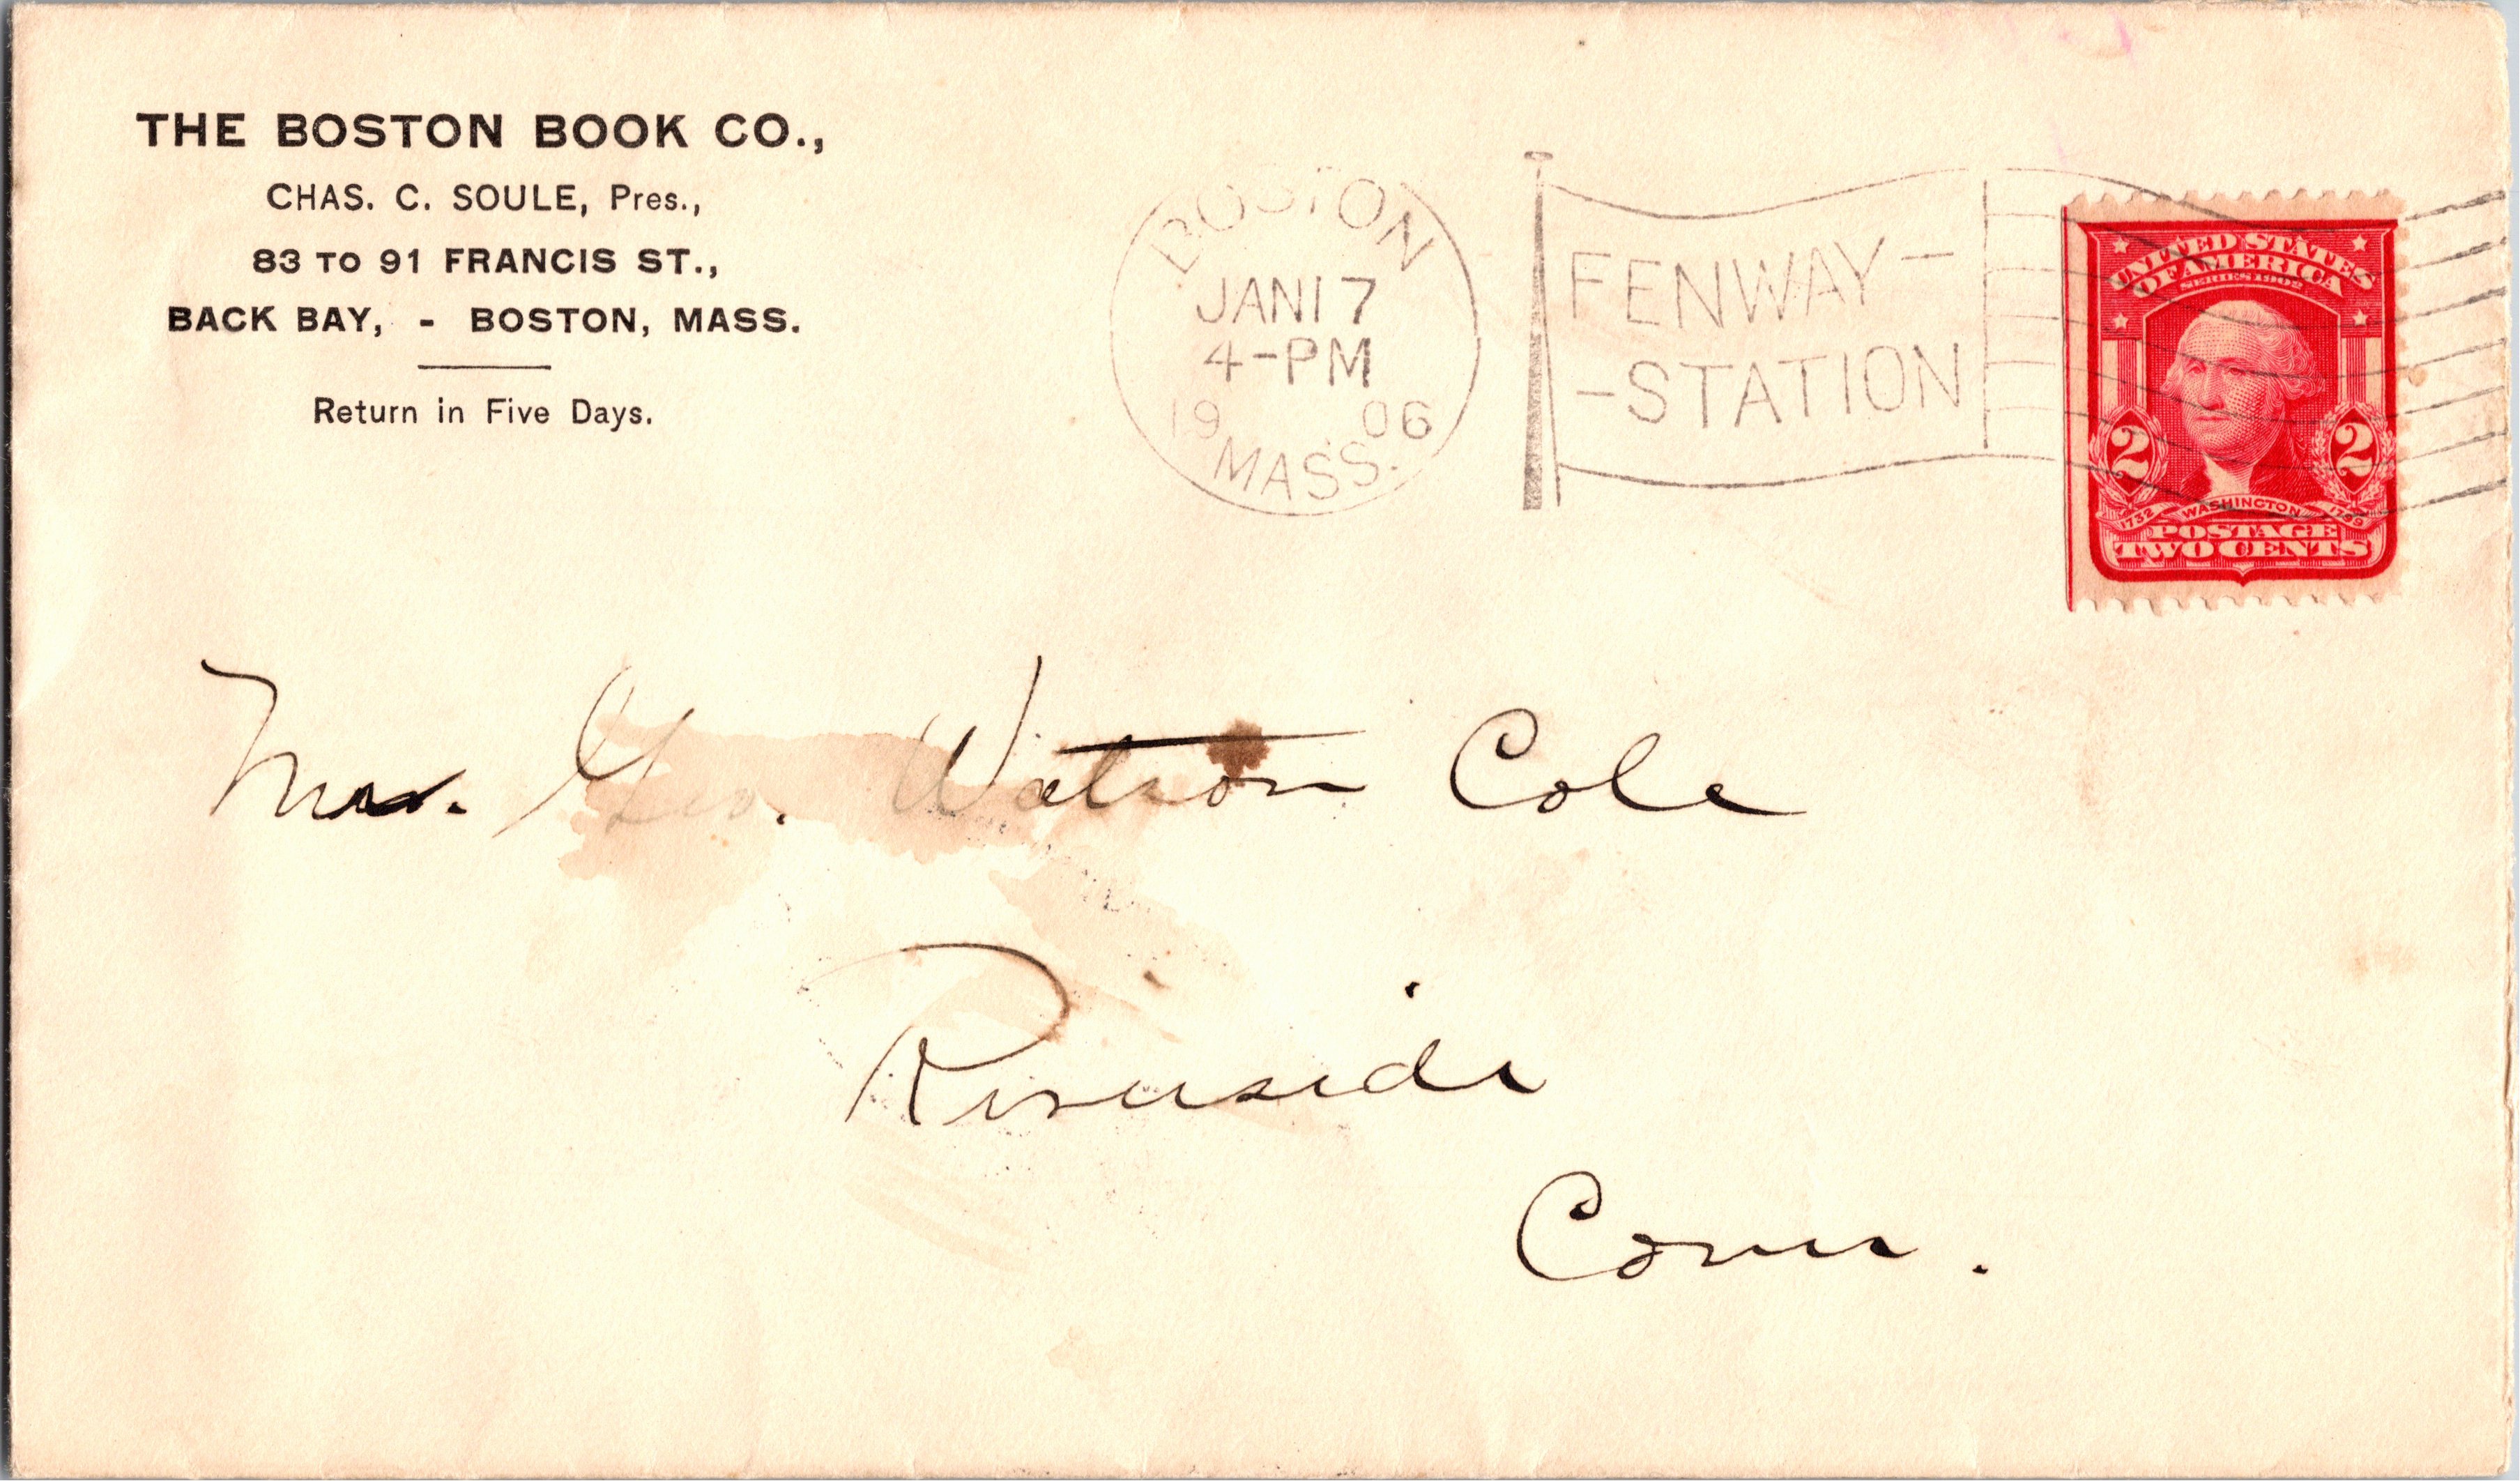 THE BOSTON BOOK CO.,
CHAS. C. SOULE, Pres.,
83 TO 91 FRANCIS ST.,
BACK BAY, - BOSTON, MASS.
Return in Five Days.
BOSTON
JAN 17
4-PM
19 06
MASS.
FENWAY-
-STATION
UNITED STATES
OF AMERICA
SERIES 1902
2 2
1732 WASHINGTON 1799
POSTAGE
TWO CENTS
Mrs. Geo. Watson Cole
Riverside
Conn.